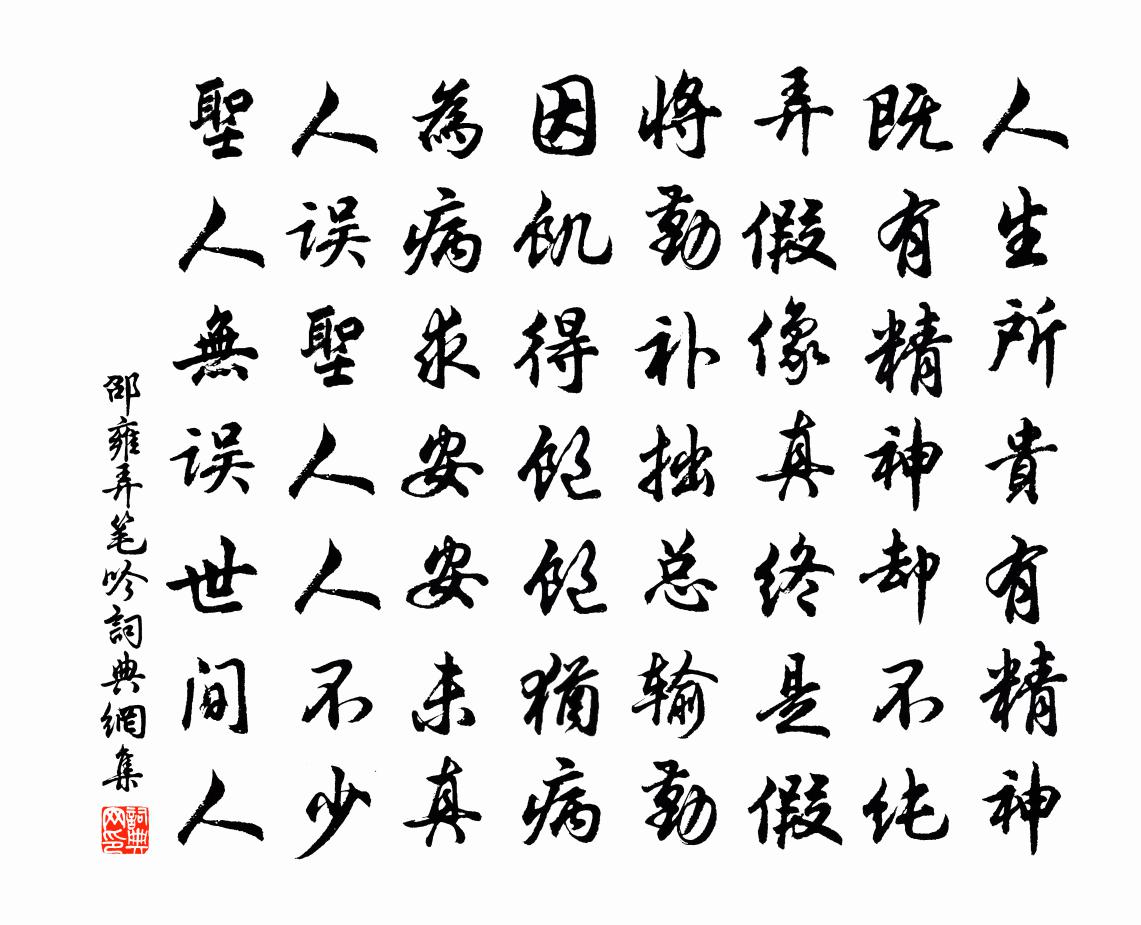 人生所貴有精神
既有精神却不纯
弄假像真终是假
将勤补拙总输勤
因饥得饱饱猶病
為病求安安未真
人误聖人人不少
聖人無误世間人
邵雍弄笔吟詞典網集
詞典网印